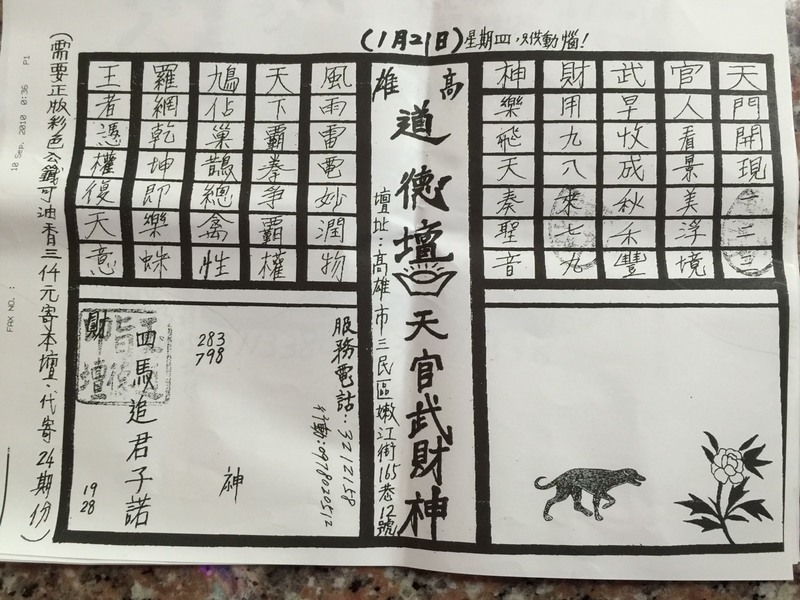 (1月21日)星期四,只供動惱!
天門開現二三
官人看景美浮境
武早牧成秋禾豐
財用九八來七九
神樂飛天奏聖音
高雄
道德壇 天官武財神
壇址:高雄市三民區嫩江街165巷12號
風雨雷電妙潤物
天下霸拳爭霸權
鳩佔巢鵲總禽性
羅網乾坤即樂蛛
王者憑權復天意
服務電話:3212158
行動:0978020512
283
798
神
四馬追君子諾
19
28
(需要正版彩色公鐵可油香三仟元寄本壇·代寄24期份)
FAX NO. :
10 Sep. 2010 0:36 P1